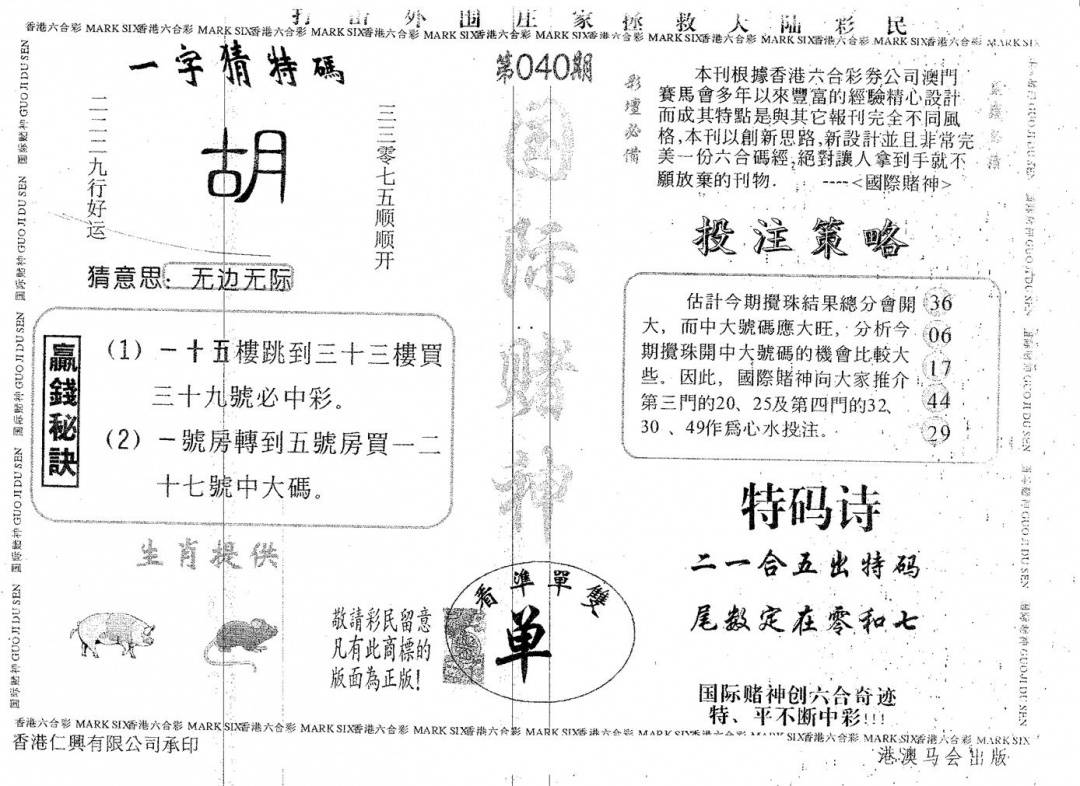 打击外围庄家拯救大陆彩民
香港六合彩 MARK SIX香港六合彩 MARK SIX香港六合彩 MARK SIX香港六合彩 MARK SIX香港六合彩 MARK SIX香港六合彩 MARK SIX香港六合彩 MARK SIX香港六合彩 MARK SIX香港六合彩 MARK SIX
一字猜特碼
二二二九行好运
胡
三三零七五顺顺开
猜意思：无边无际
贏錢秘訣
(1) 一十五樓跳到三十三樓買
三十九號必中彩。
(2) 一號房轉到五號房買一二
十七號中大碼。
生肖提供
敬請彩民留意
凡有此商標的
版面為正版!
第040期
国际赌神
看準單雙
单
彩壇必備
本刊根據香港六合彩券公司澳門
賽馬會多年以來豐富的經驗精心設計
而成其特點是與其它報刊完全不同風
格,本刊以創新思路,新設計並且非常完
美一份六合碼經,絕對讓人拿到手就不
願放棄的刊物. ----<國際賭神>
投注策略
估計今期攪珠結果總分會開
大，而中大號碼應大旺，分析今
期攪珠開中大號碼的機會比較大
些。因此，國際賭神向大家推介
第三門的20、25及第四門的32、
30、49作爲心水投注。
36
06
17
44
29
特码诗
二一合五出特码
尾数定在零和七
国际赌神创六合奇迹
特、平不断中彩!!!
国际赌神 GUO JI DU SEN 国际赌神 GUO JI DU SEN 国际赌神 GUO JI DU SEN 国际赌神 GUO JI DU SEN 国际赌神 GUO JI DU SEN
香港六合彩 MARK SIX香港六合彩 MARK SIX香港六合彩 MARK SIX香港六合彩 MARK SIX香港六合彩 MARK SIX香港六合彩 MARK SIX香港六合彩 MARK SIX香港六合彩 MARK SIX香港六合彩 MARK SIX
香港仁興有限公司承印
港澳马会出版